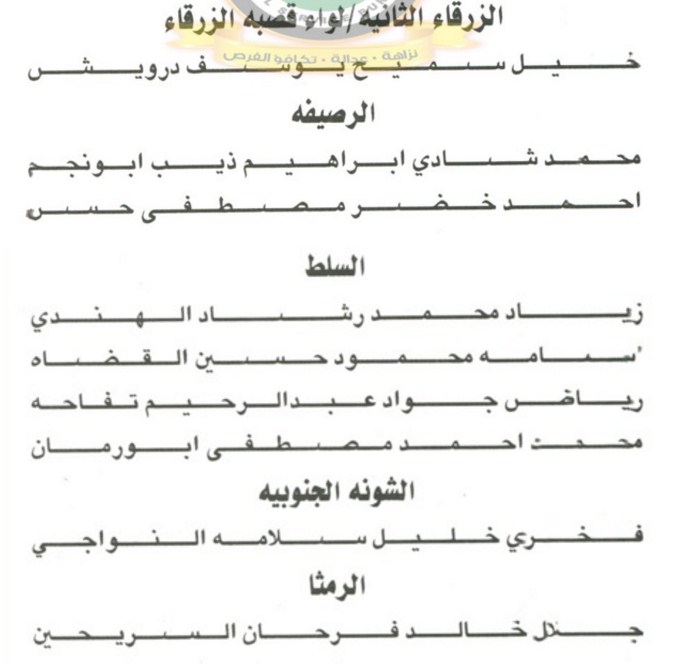 الزرقاء الثانيه/لواء قصبه الزرقاء
نزاهة · عدالة · تكافؤ الفرص
خليل سميح يوسف درويش
الرصيفه
محمد شادي ابراهيم ذيب ابونجم
احمد خضر مصطفى حسن
السلط
زياد محمد رشاد الهندي
اسامه محمود حسين القضاه
رياض جواد عبدالرحيم تفاحه
محمد احمد مصطفى ابورمان
الشونه الجنوبيه
فخري خليل سلامه النواجي
الرمثا
جلال خالد فرحان السريحين